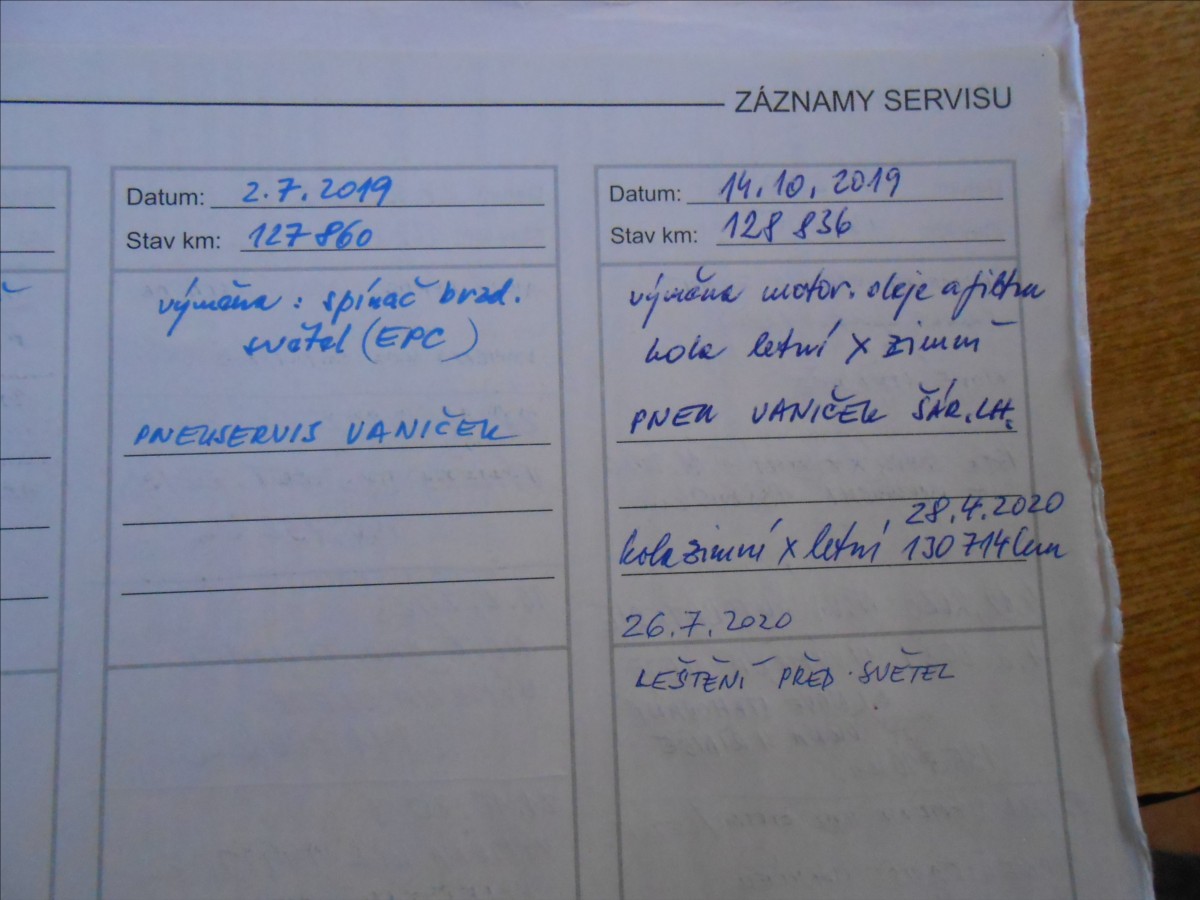 ZÁZNAMY SERVISU
Datum: 2.7.2019
Stav km: 127 860
výměna : spínač brzd.
světel (EPC)
PNEUSERVIS VANIČEK
Datum: 14.10.2019
Stav km: 128 836
výměna motor. oleje a filtru
kola letní x zimní
PNEU VANIČEK ŠÁR.CH.
28.4.2020
kola zimní x letní 130 714 km
26.7.2020
LEŠTĚNÍ PŘED. SVĚTEL